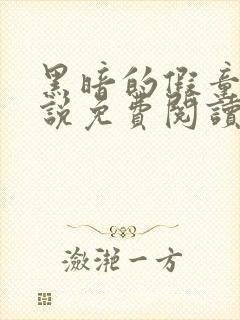 黑暗的假童
說免費閱讀
瀲滟一方